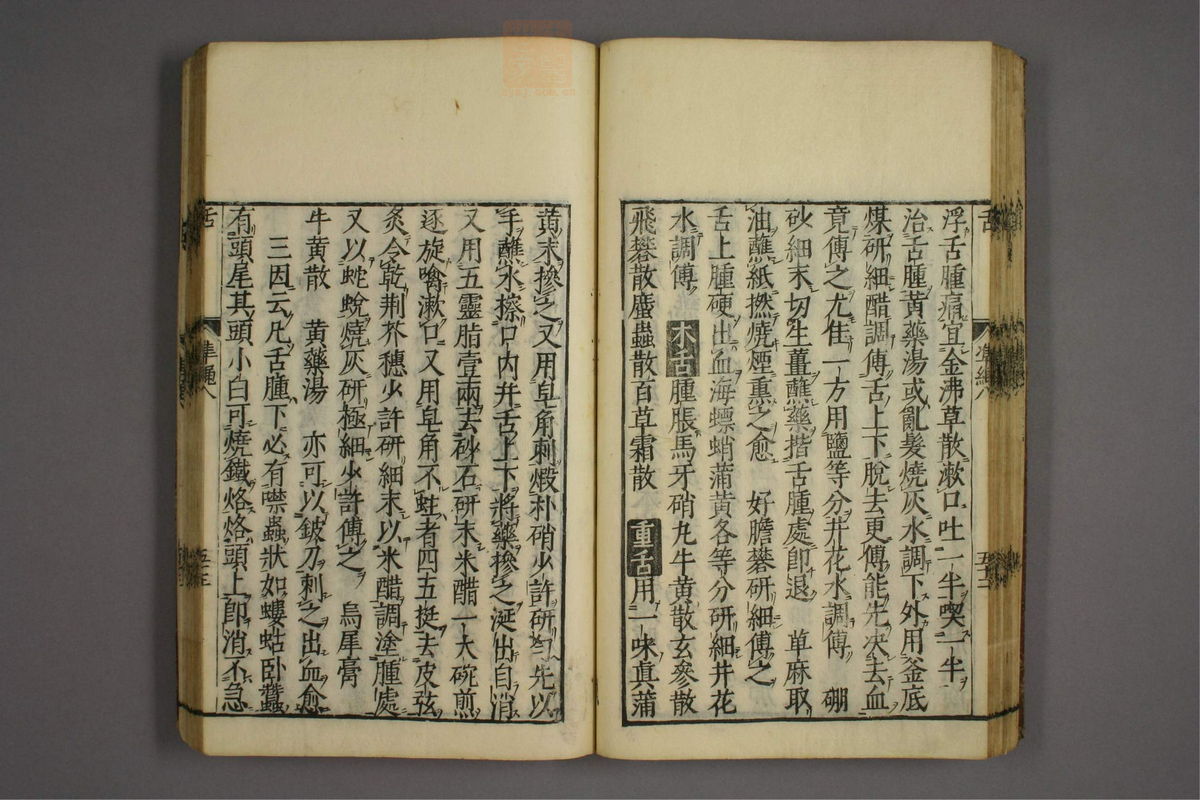 浮舌腫痛宜金沸草散漱口吐一半喫一半
治舌腫黄藥湯或亂髮燒灰水調下外用釜底
煤研細醋調傅舌上下脫去更傅能先决去血
竟傅之尤佳一方用鹽等分井花水調傅 硼
砂細末切生薑蘸藥揩舌腫處卽退 草麻取
油蘸紙撚燒煙熏之愈 好膽礬研細傅之
舌上腫硬出血海螵蛸蒲黄各等分研細井花
水調傅 木舌腫脹馬牙硝丸牛黄散玄參散
飛礬散䗪蟲散百草霜散 重舌用一味眞蒲
黄末摻之又用皂角刺煅朴硝少許研勻先以
手蘸水擦口内幷舌上下將藥摻之涎出自消
又用五靈脂壹兩去砂石研末米醋一大碗煎
逐旋噙漱口又用皂角不蛀者四五挺去皮弦
炙令乾荆芥穗少許研細末以米醋調塗腫處
又以蛇蛻燒灰研極細少許傅之 烏犀膏
牛黄散 黄藥湯 亦可以鈹刀刺之出血愈
三因云凡舌腫下必有噤蟲狀如螻蛄卧蠶
有頭尾其頭小白可燒鐵烙烙頭上卽消不急
舌
準繩八
五十三